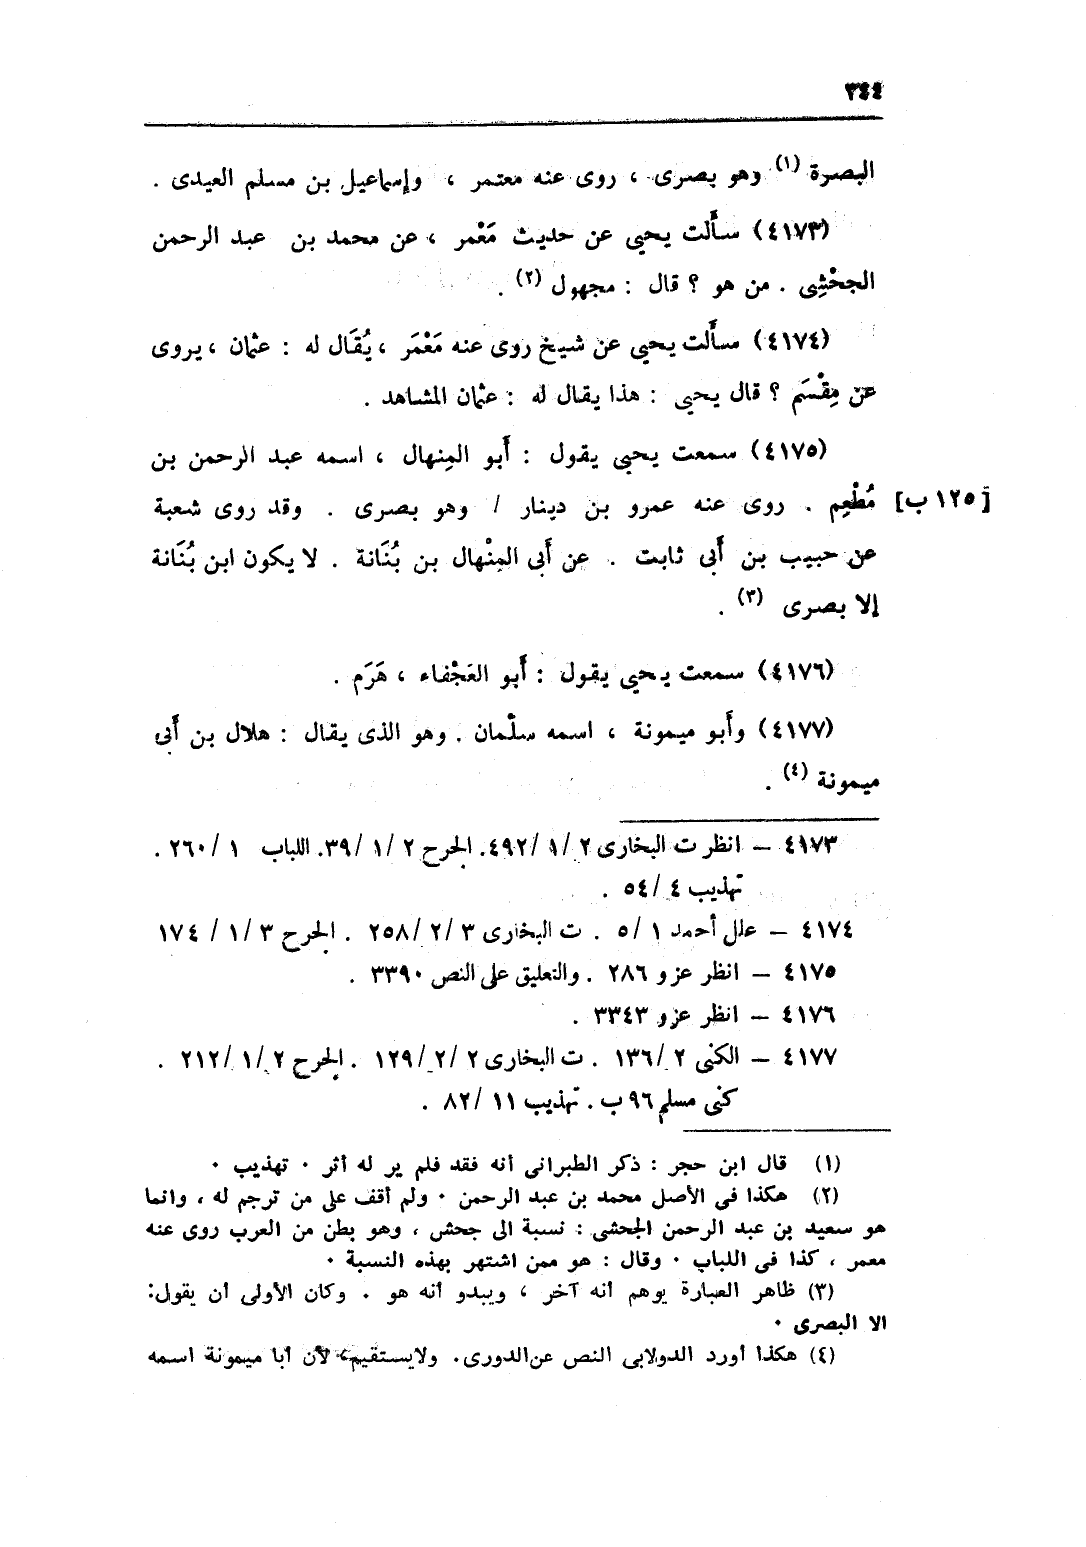 ٣٤٤
البصرة (١) وهو بصرى ، روى عنه معتمر ، وإسماعيل بن مسلم العيدى .
(٤١٧٣) سأَلت يحيى عن حديث مَعْمر ، عن محمد بن عبد الرحمن
الجحْشِى . من هو ؟ قال : مجهول (٢) .
(٤١٧٤) سأَلت يحيى عن شيخ روى عنه مَعْمَر ، يُقَال له : عثمان ، يروى
عن مِقْسَم ؟ قال يحيى : هذا يقال له : عثمان المشاهد .
(٤١٧٥) سمعت يحيى يقول : أَبو المِنهال ، اسمه عبد الرحمن بن
مُطْعِم . روى عنه عمرو بن دينار / وهو بصرى . وقد روى شعبة [١٢٥ ب]
عن حبيب بن أَبى ثابت . عن أَبى المِنْهال بن بُنَانة . لا يكون ابن بُنَانة
إلا بصرى (٣) .
(٤١٧٦) سمعت يحيى يقول : أَبو العَجْفاء ، هَرَم .
(٤١٧٧) وأَبو ميمونة ، اسمه سلْمان . وهو الذى يقال : هلال بن أَبى
ميمونة (٤) .
٤١٧٣ – انظر ت البخارى ٢ /١ /٤٩٢. الجرح ٢ /١ /٣٩. اللباب ١ /٢٦٠ .
تهذيب ٤ /٥٤ .
٤١٧٤ – علل أحمد ١ /٥ . ت البخارى ٣ /٢ /٢٥٨ . الجرح ٣ /١ / ١٧٤
٤١٧٥ – انظر عزو ٢٨٦ . والتعليق على النص ٣٣٩٠ .
٤١٧٦ – انظر عزو ٣٣٤٣ .
٤١٧٧ – الكنى ٢ /١٣٦ . ت البخارى ٢ /٢ /١٢٩ . الجرح ٢ /١ /٢١٢ .
كنى مسلم ٩٦ ب . تهذيب ١١ /٨٢ .
(١) قال ابن حجر : ذكر الطبرانى أنه فقد فلم ير له أثر ٠ تهذيب ٠
(٢) هكذا فى الأصل محمد بن عبد الرحمن ٠ ولم أقف على من ترجم له ، وانما
هو سعيد بن عبد الرحمن الجحشى : نسبة الى جحش ، وهو بطن من العرب روى عنه
معمر ، كذا فى اللباب ٠ وقال : هو ممن اشتهر بهذه النسبة ٠
(٣) ظاهر العبارة يوهم أنه آخر ، ويبدو أنه هو . وكان الأولى أن يقول:
الا البصرى ٠
(٤) هكذا أورد الدولابى النص عن الدورى. ولايستقيم، لأن أبا ميمونة اسمه